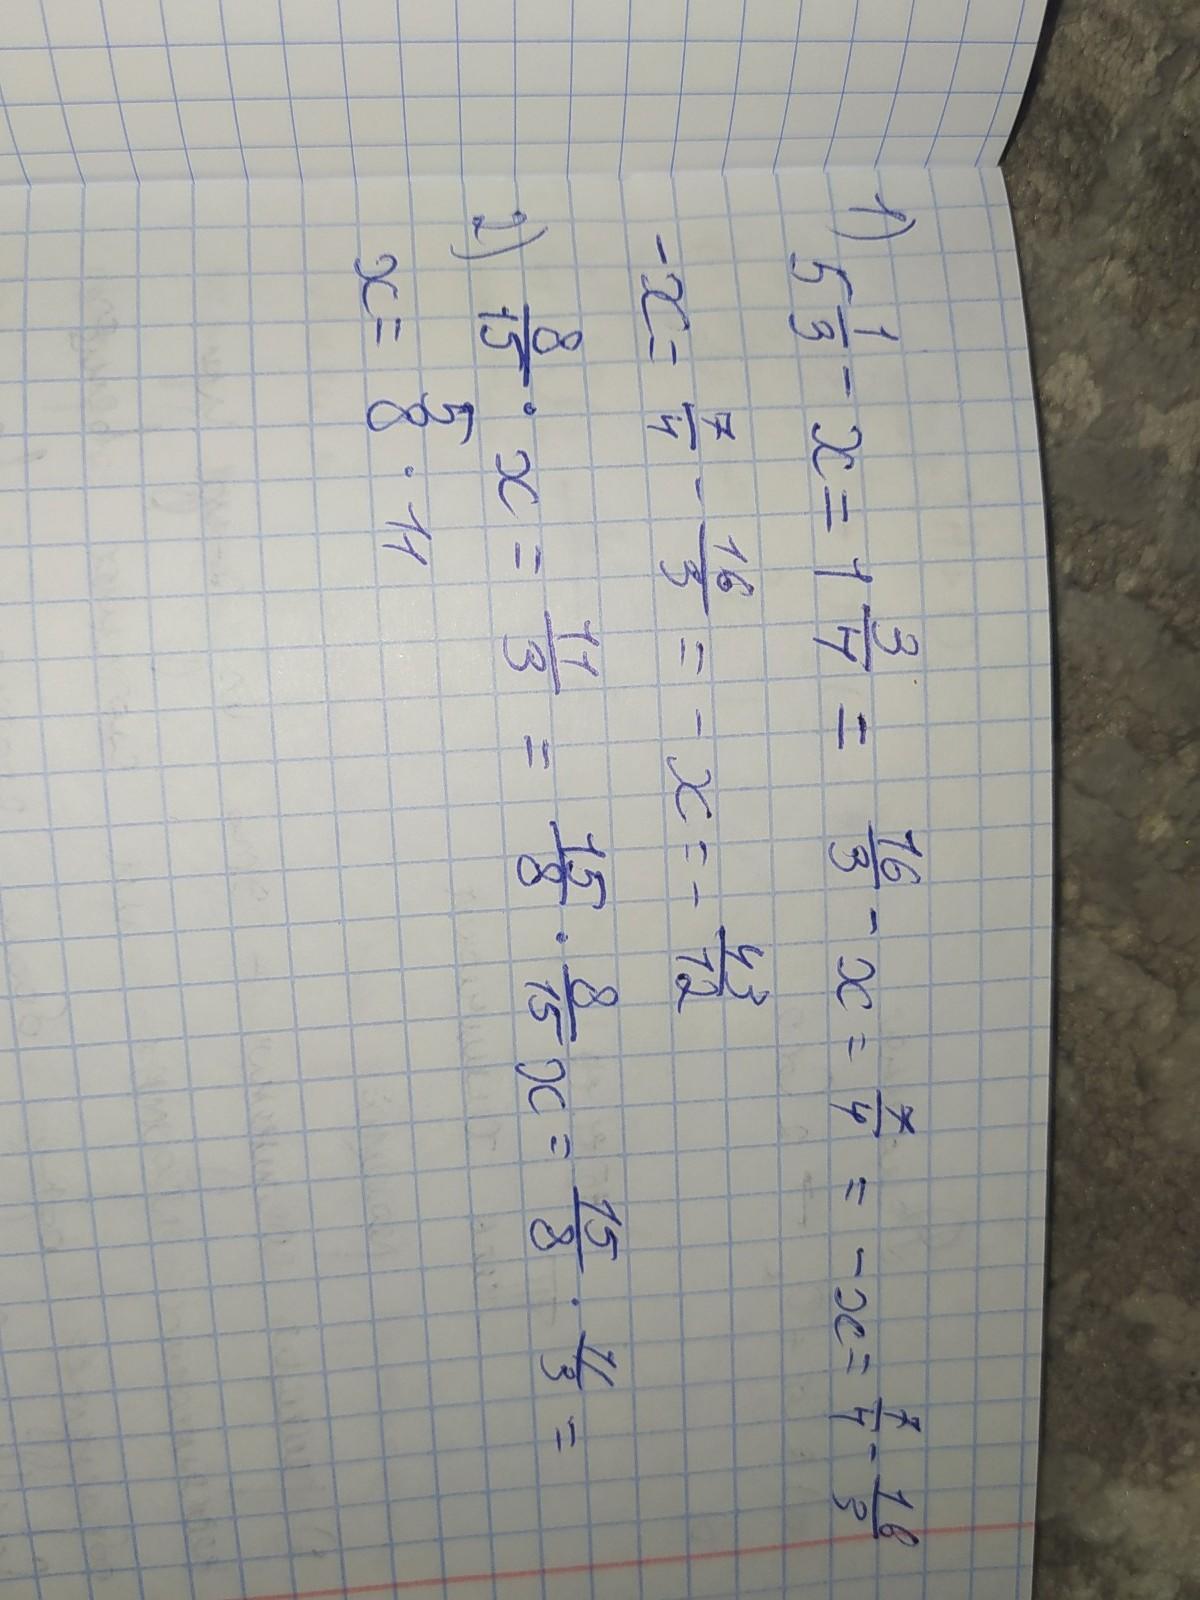 1) 5 1/3 - x = 1 3/4 = 16/3 - x = 7/4 = - x = 7/4 - 16/3
- x = 7/4 - 16/3 = - x = - 43/12
2) 8/15 · x = 11/3 = 15/8 · 8/15 x = 15/8 · 11/3 =
x = 5/8 · 11